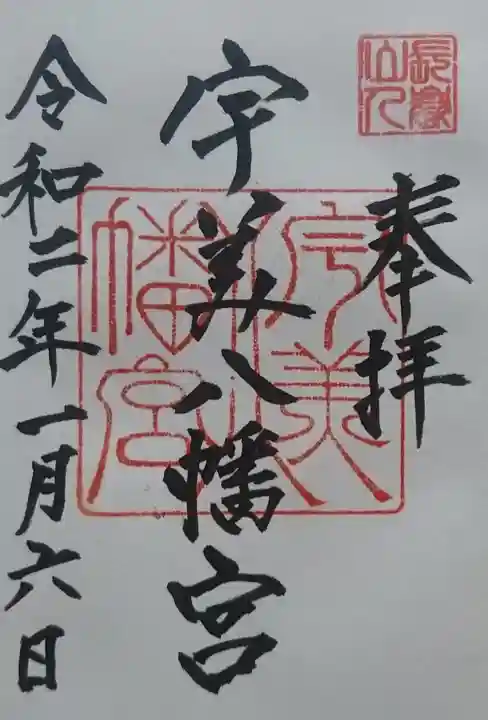 奉拝
長嶽山人
宇美八幡宮
宇美八幡宮
令和二年一月六日